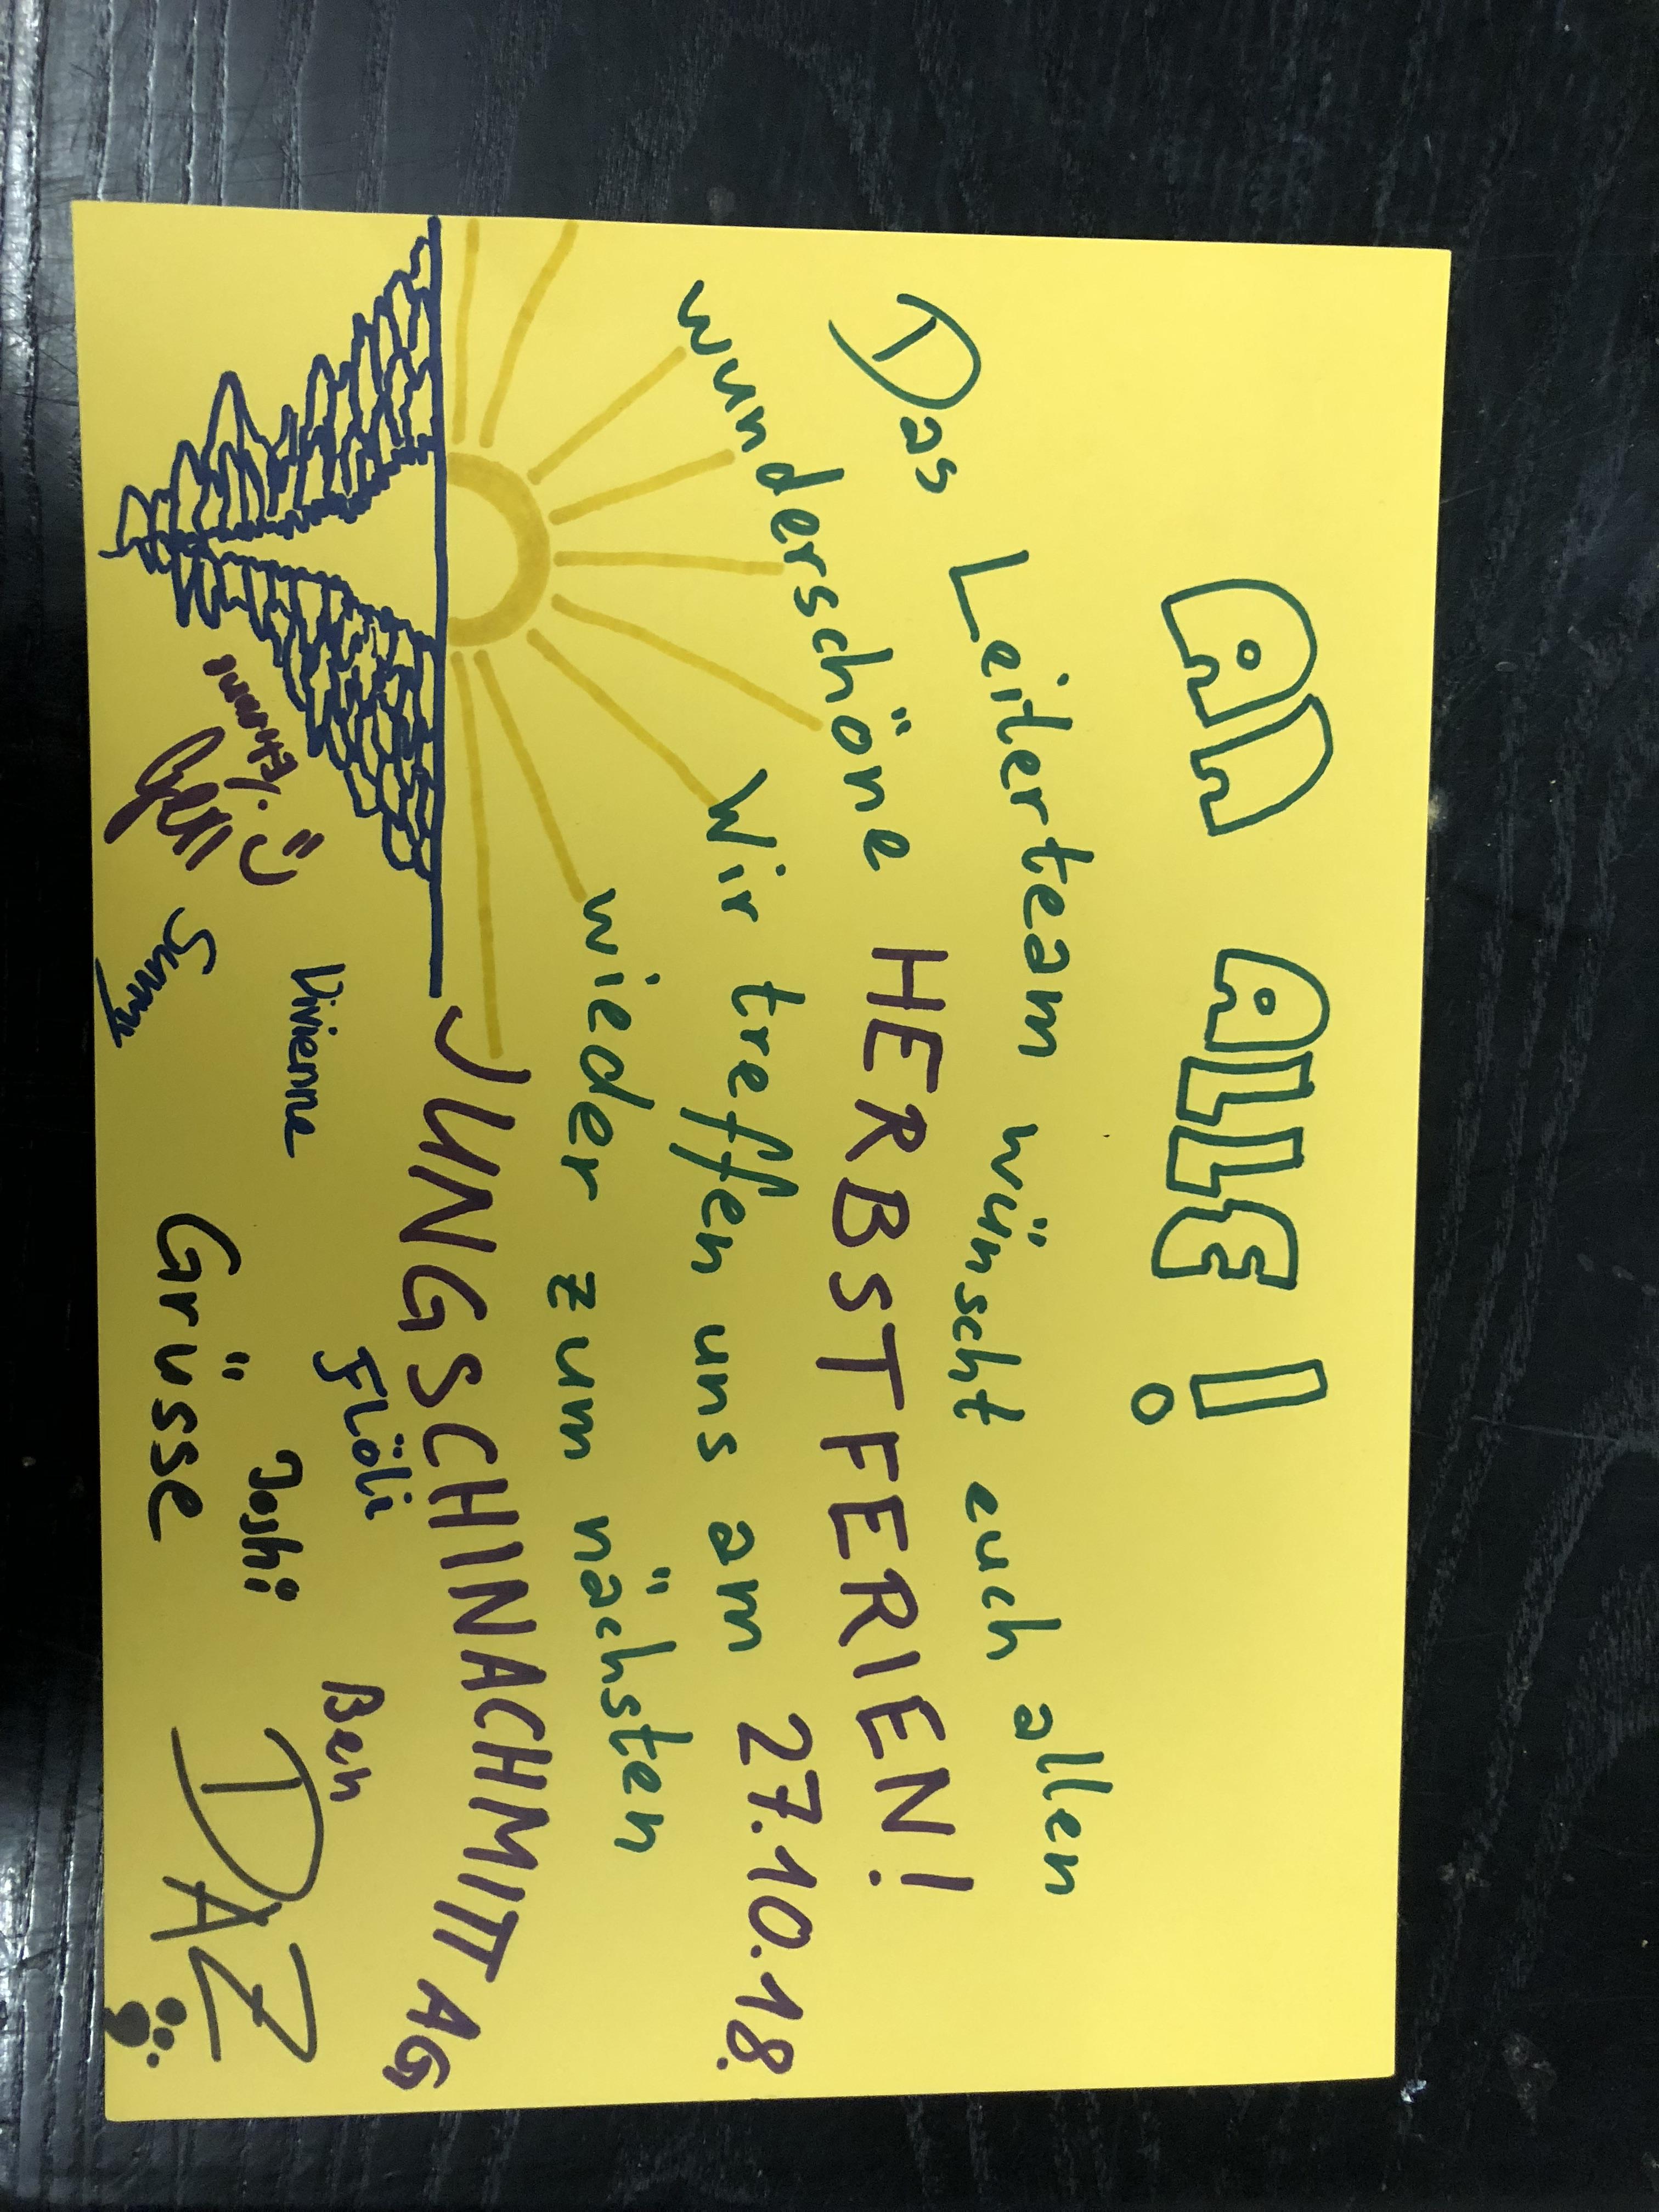 An ALLE!
Das Leiterteam wünscht euch allen
wunderschöne HERBSTFERIEN!
Wir treffen uns am 27.10.18.
wieder zum nächsten
JUNGSCHINACHMITTAG
Vivienne
Flöli
Ben
Joshi
Sunny
Grüsse
DAZ